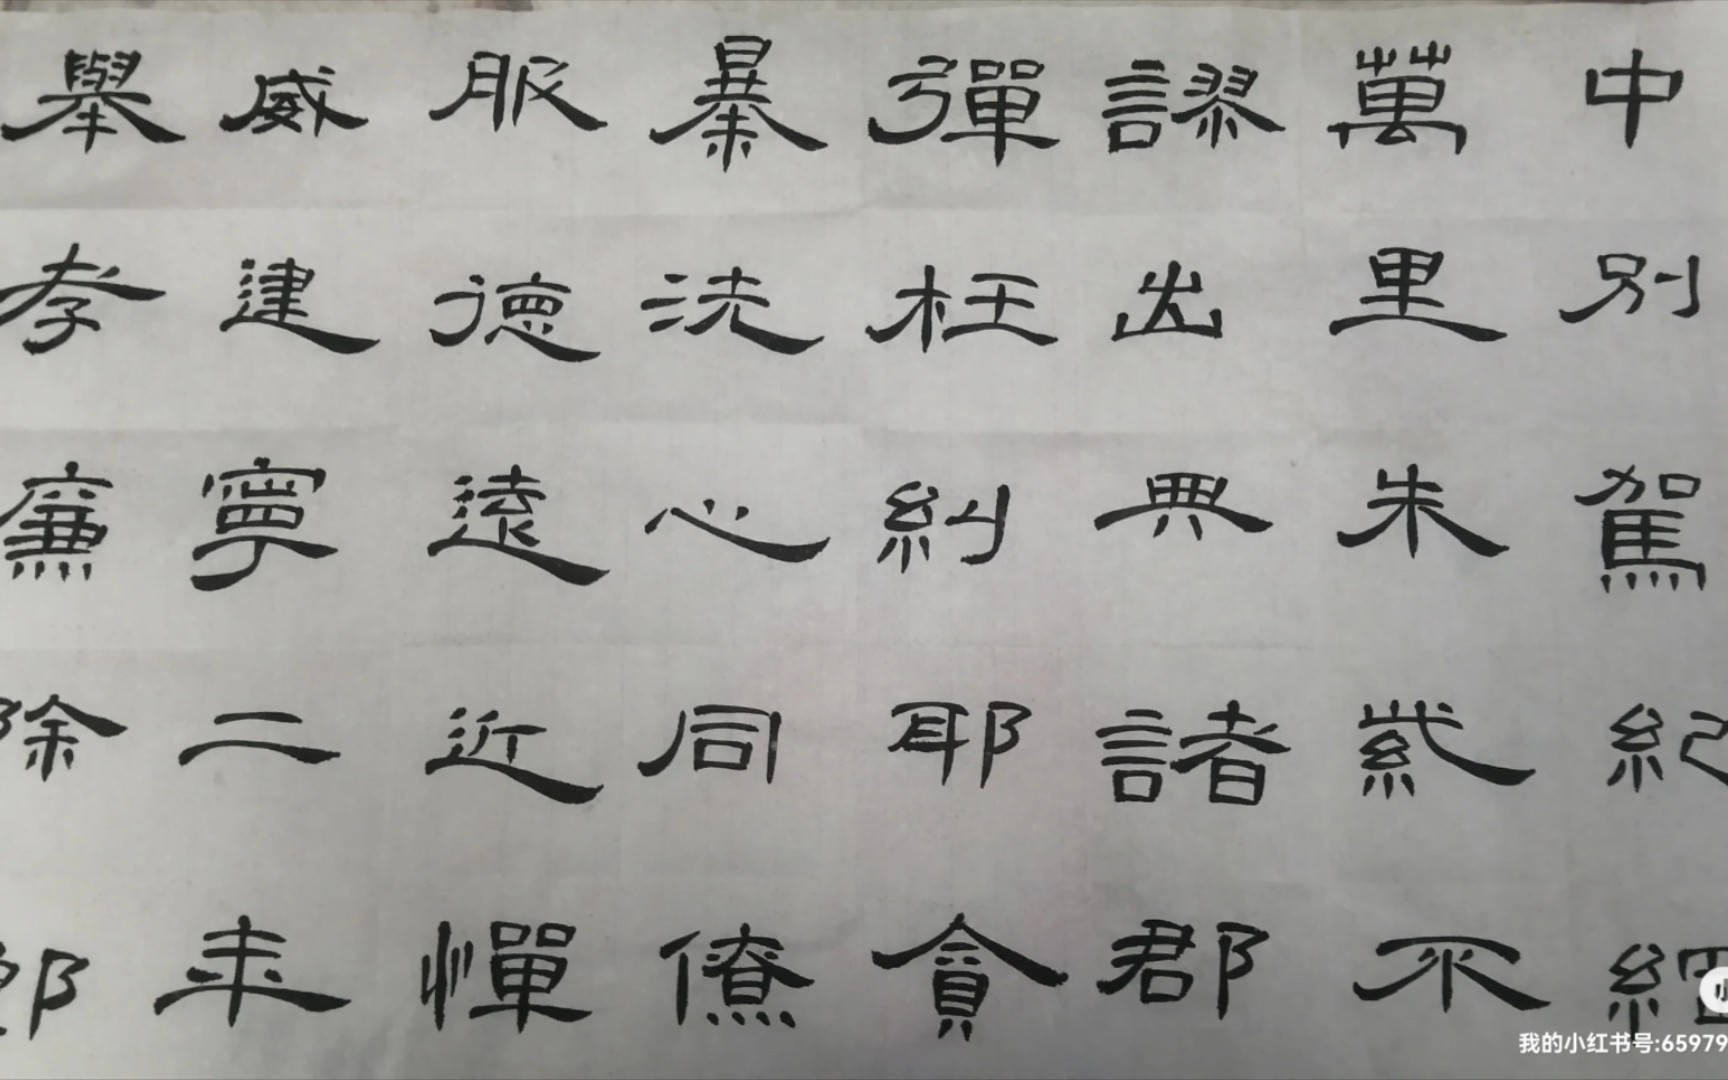 中別駕紀綱
萬里朱紫不
謬出典諸郡
彈枉糾耶貪
暴洗心同僚
服德遠近憚
威建寧二年
舉孝廉除郎
我的小红书号:65979